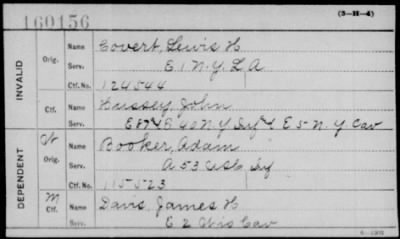 160156
(3-H-4)
INVALID
Orig.
Name Covert, Lewis H
Serv. E 1 N.Y. L A
Ctf. No. 124544
Ctf.
Name Hussey, John
Serv. E 87 & B 40 N Y Inf & E 5 N.Y Cav
DEPENDENT
W
Orig.
Name Booker, Adam
Serv. A 53 USC Inf
Ctf. No. 115523
M
Ctf.
Name Davis, James H
Serv. E 2 Wis Cav